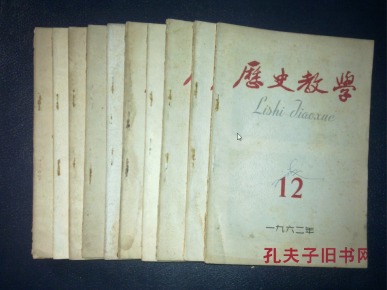 歷史教學
Lishi Jiaoxue
12
一九六二年
孔夫子旧书网